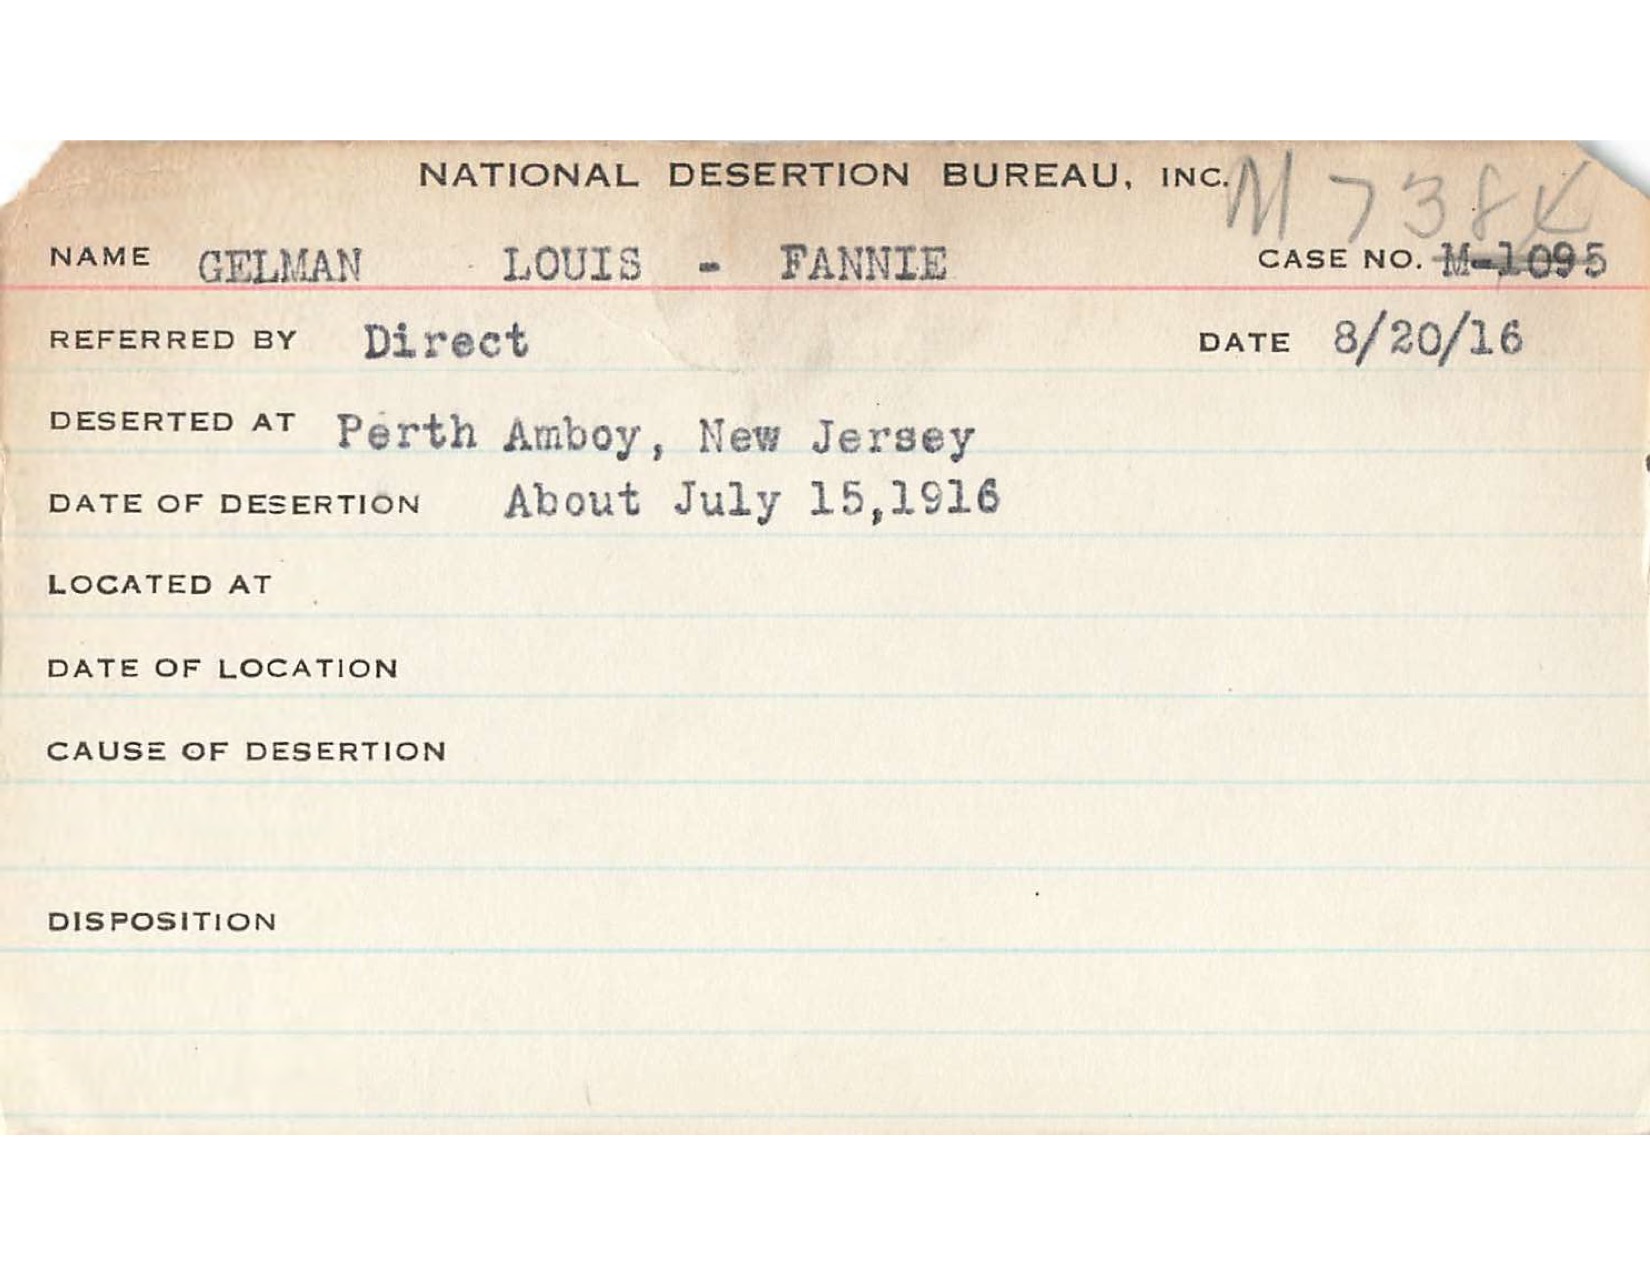 NATIONAL DESERTION BUREAU, INC.
M 738
NAME GELMAN LOUIS - FANNIE CASE NO. M-1095
REFERRED BY Direct DATE 8/20/16
DESERTED AT Perth Amboy, New Jersey
DATE OF DESERTION About July 15,1916
LOCATED AT
DATE OF LOCATION
CAUSE OF DESERTION
DISPOSITION